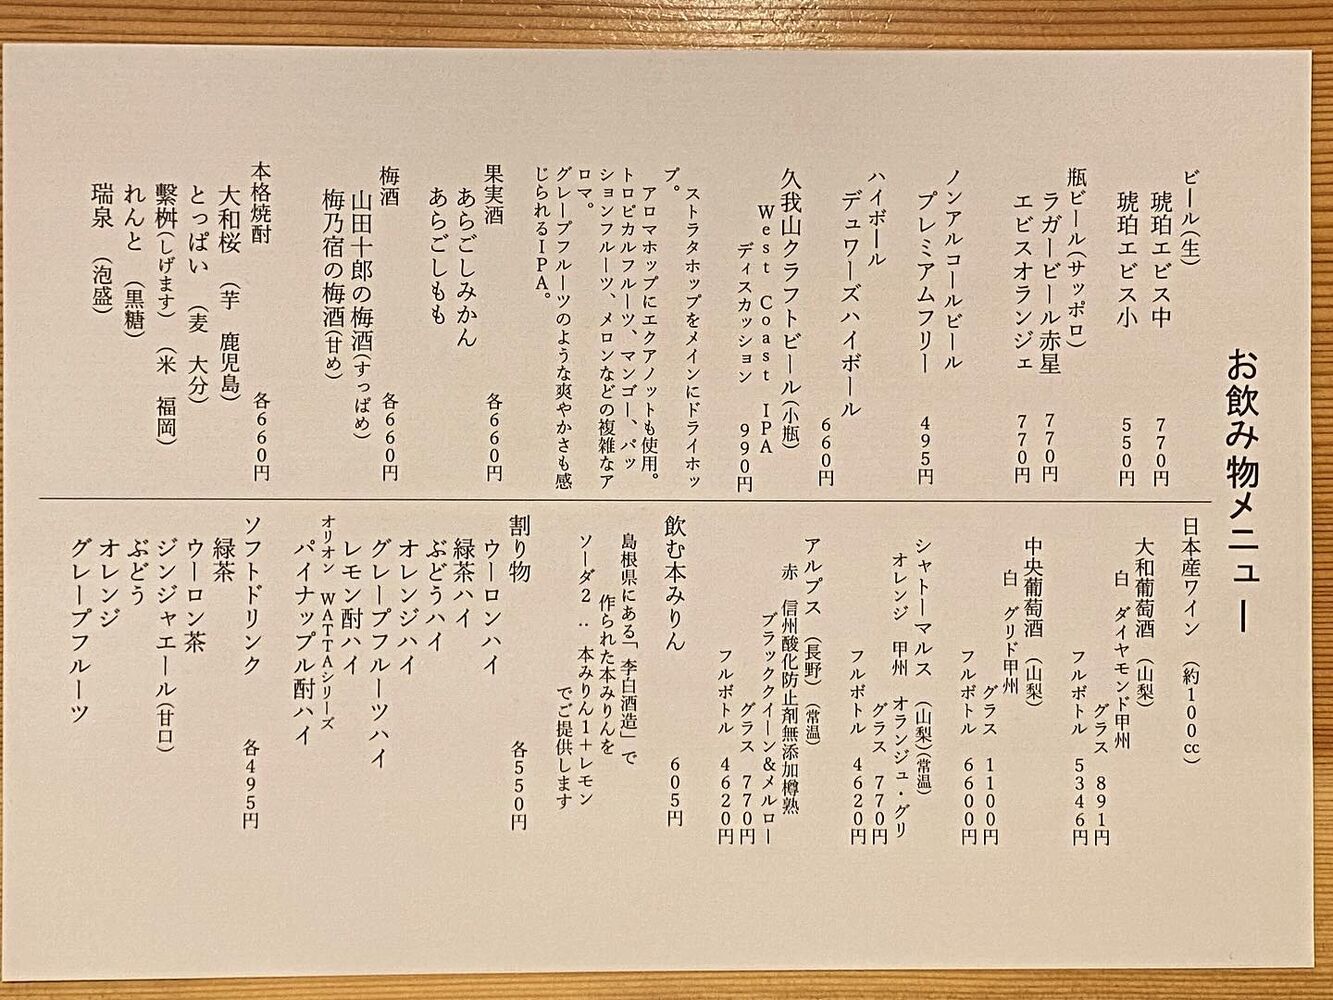 お飲み物メニュー
ビール(生)
琥珀エビス中 770円
琥珀エビス小 550円
瓶ビール(サッポロ)
ラガービール赤星 770円
エビスオランジェ 770円
ノンアルコールビール
プレミアムフリー 495円
ハイボール
デュワーズハイボール
660円
久我山クラフトビール(小瓶)
West Coast IPA
ディスカッション 990円
ストラタホップをメインにドライホッ
プ。
アロマホップにエクアノットも使用。
トロピカルフルーツ、マンゴー、パッ
ションフルーツ、メロンなどの複雑なア
ロマ。
グレープフルーツのような爽やかさも感
じられるIPA。
果実酒 各660円
あらごしみかん
あらごしもも
梅酒 各660円
山田十郎の梅酒(すっぱめ)
梅乃宿の梅酒(甘め)
本格焼酎 各660円
大和桜 (芋 鹿児島)
とっぱい (麦 大分)
繋桝(しげます) (米 福岡)
れんと (黒糖)
瑞泉 (泡盛)
日本産ワイン (約100cc)
大和葡萄酒 (山梨)
白 ダイヤモンド甲州
グラス 891円
フルボトル 5346円
中央葡萄酒 (山梨)
白 グリド甲州
グラス 1100円
フルボトル 6600円
シャトーマルス (山梨)(常温)
オレンジ 甲州 オランジュ・グリ
グラス 770円
フルボトル 4620円
アルプス (長野) (常温)
赤 信州酸化防止剤無添加樽熟
ブラッククイーン&メルロー
グラス 770円
フルボトル 4620円
飲む本みりん 605円
島根県にある「李白酒造」で
作られた本みりんを
ソーダ2:本みりん1+レモン
でご提供します
割り物 各550円
ウーロンハイ
緑茶ハイ
ぶどうハイ
オレンジハイ
グレープフルーツハイ
レモン酎ハイ
オリオン WATTAシリーズ
パイナップル酎ハイ
ソフトドリンク 各495円
緑茶
ウーロン茶
ジンジャエール(甘口)
ぶどう
オレンジ
グレープフルーツ